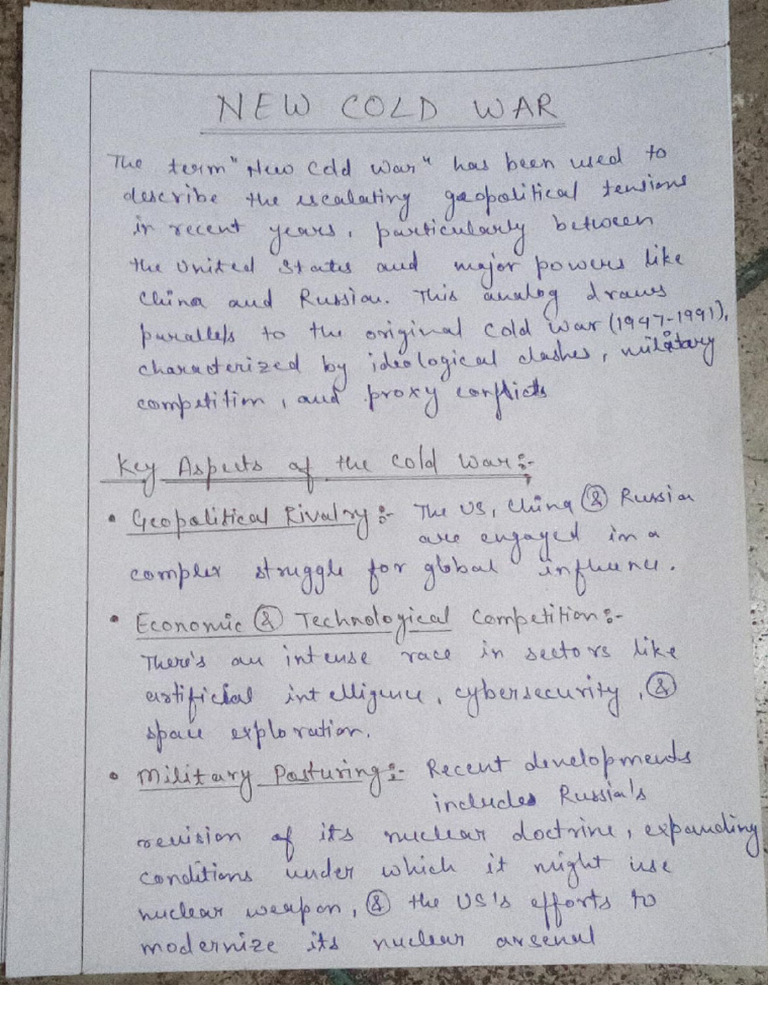 NEW COLD WAR
The term "New Cold War" has been used to
describe the escalating geopolitical tensions
in recent years, particularly between
the United States and major powers like
China and Russian. This analog draws
parallels to the original Cold War (1947-1991),
characterized by ideological clashes, military
competition, and proxy conflicts
Key Aspects of the Cold War:-
• Geopolitical Rivalry:- The US, China & Russia
are engaged in a
complex struggle for global influence.
• Economic & Technological Competition:-
There's an intense race in sectors like
artificial intelligence, cybersecurity, &
space exploration.
• Military Posturing:- Recent developments
includes Russia's
revision of its nuclear doctrine, expanding
conditions under which it might use
nuclear weapon, & the US's efforts to
modernize its nuclear arsenal